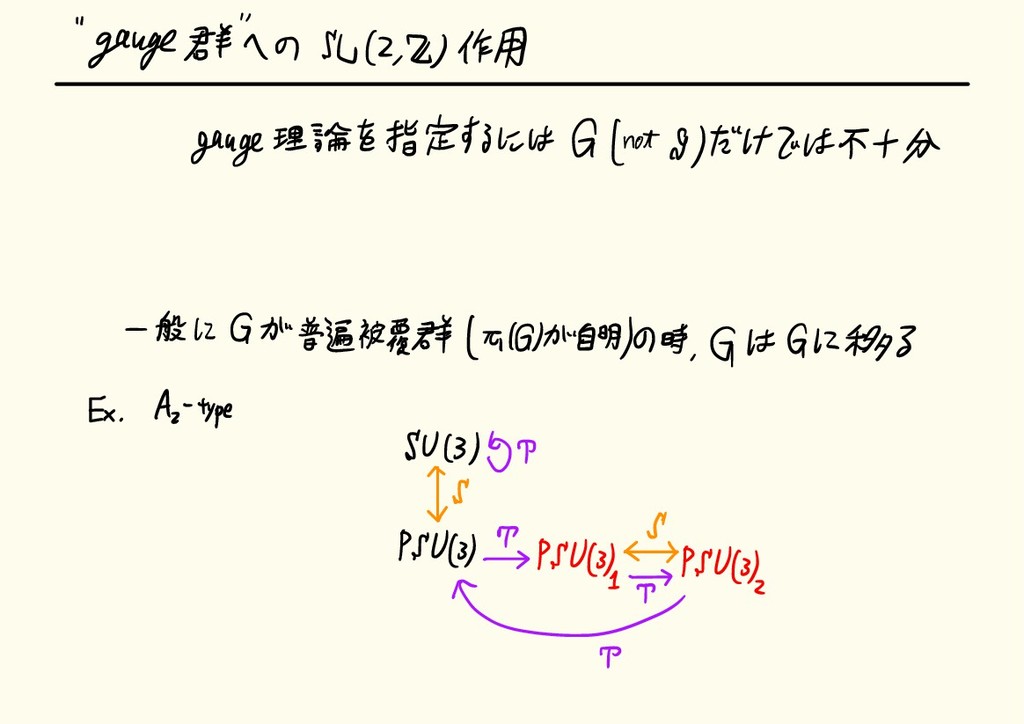 "gauge 群"への SL(2,ℤ) 作用
gauge 理論を指定するには G (not 𝔤) だけでは不十分
一般に G が普遍被覆群 (π₁(G)が自明)の時, G は G に移る
Ex. A₂-type
SU(3) T
S
PSU(3) T PSU(3)₁ S T PSU(3)₂
T